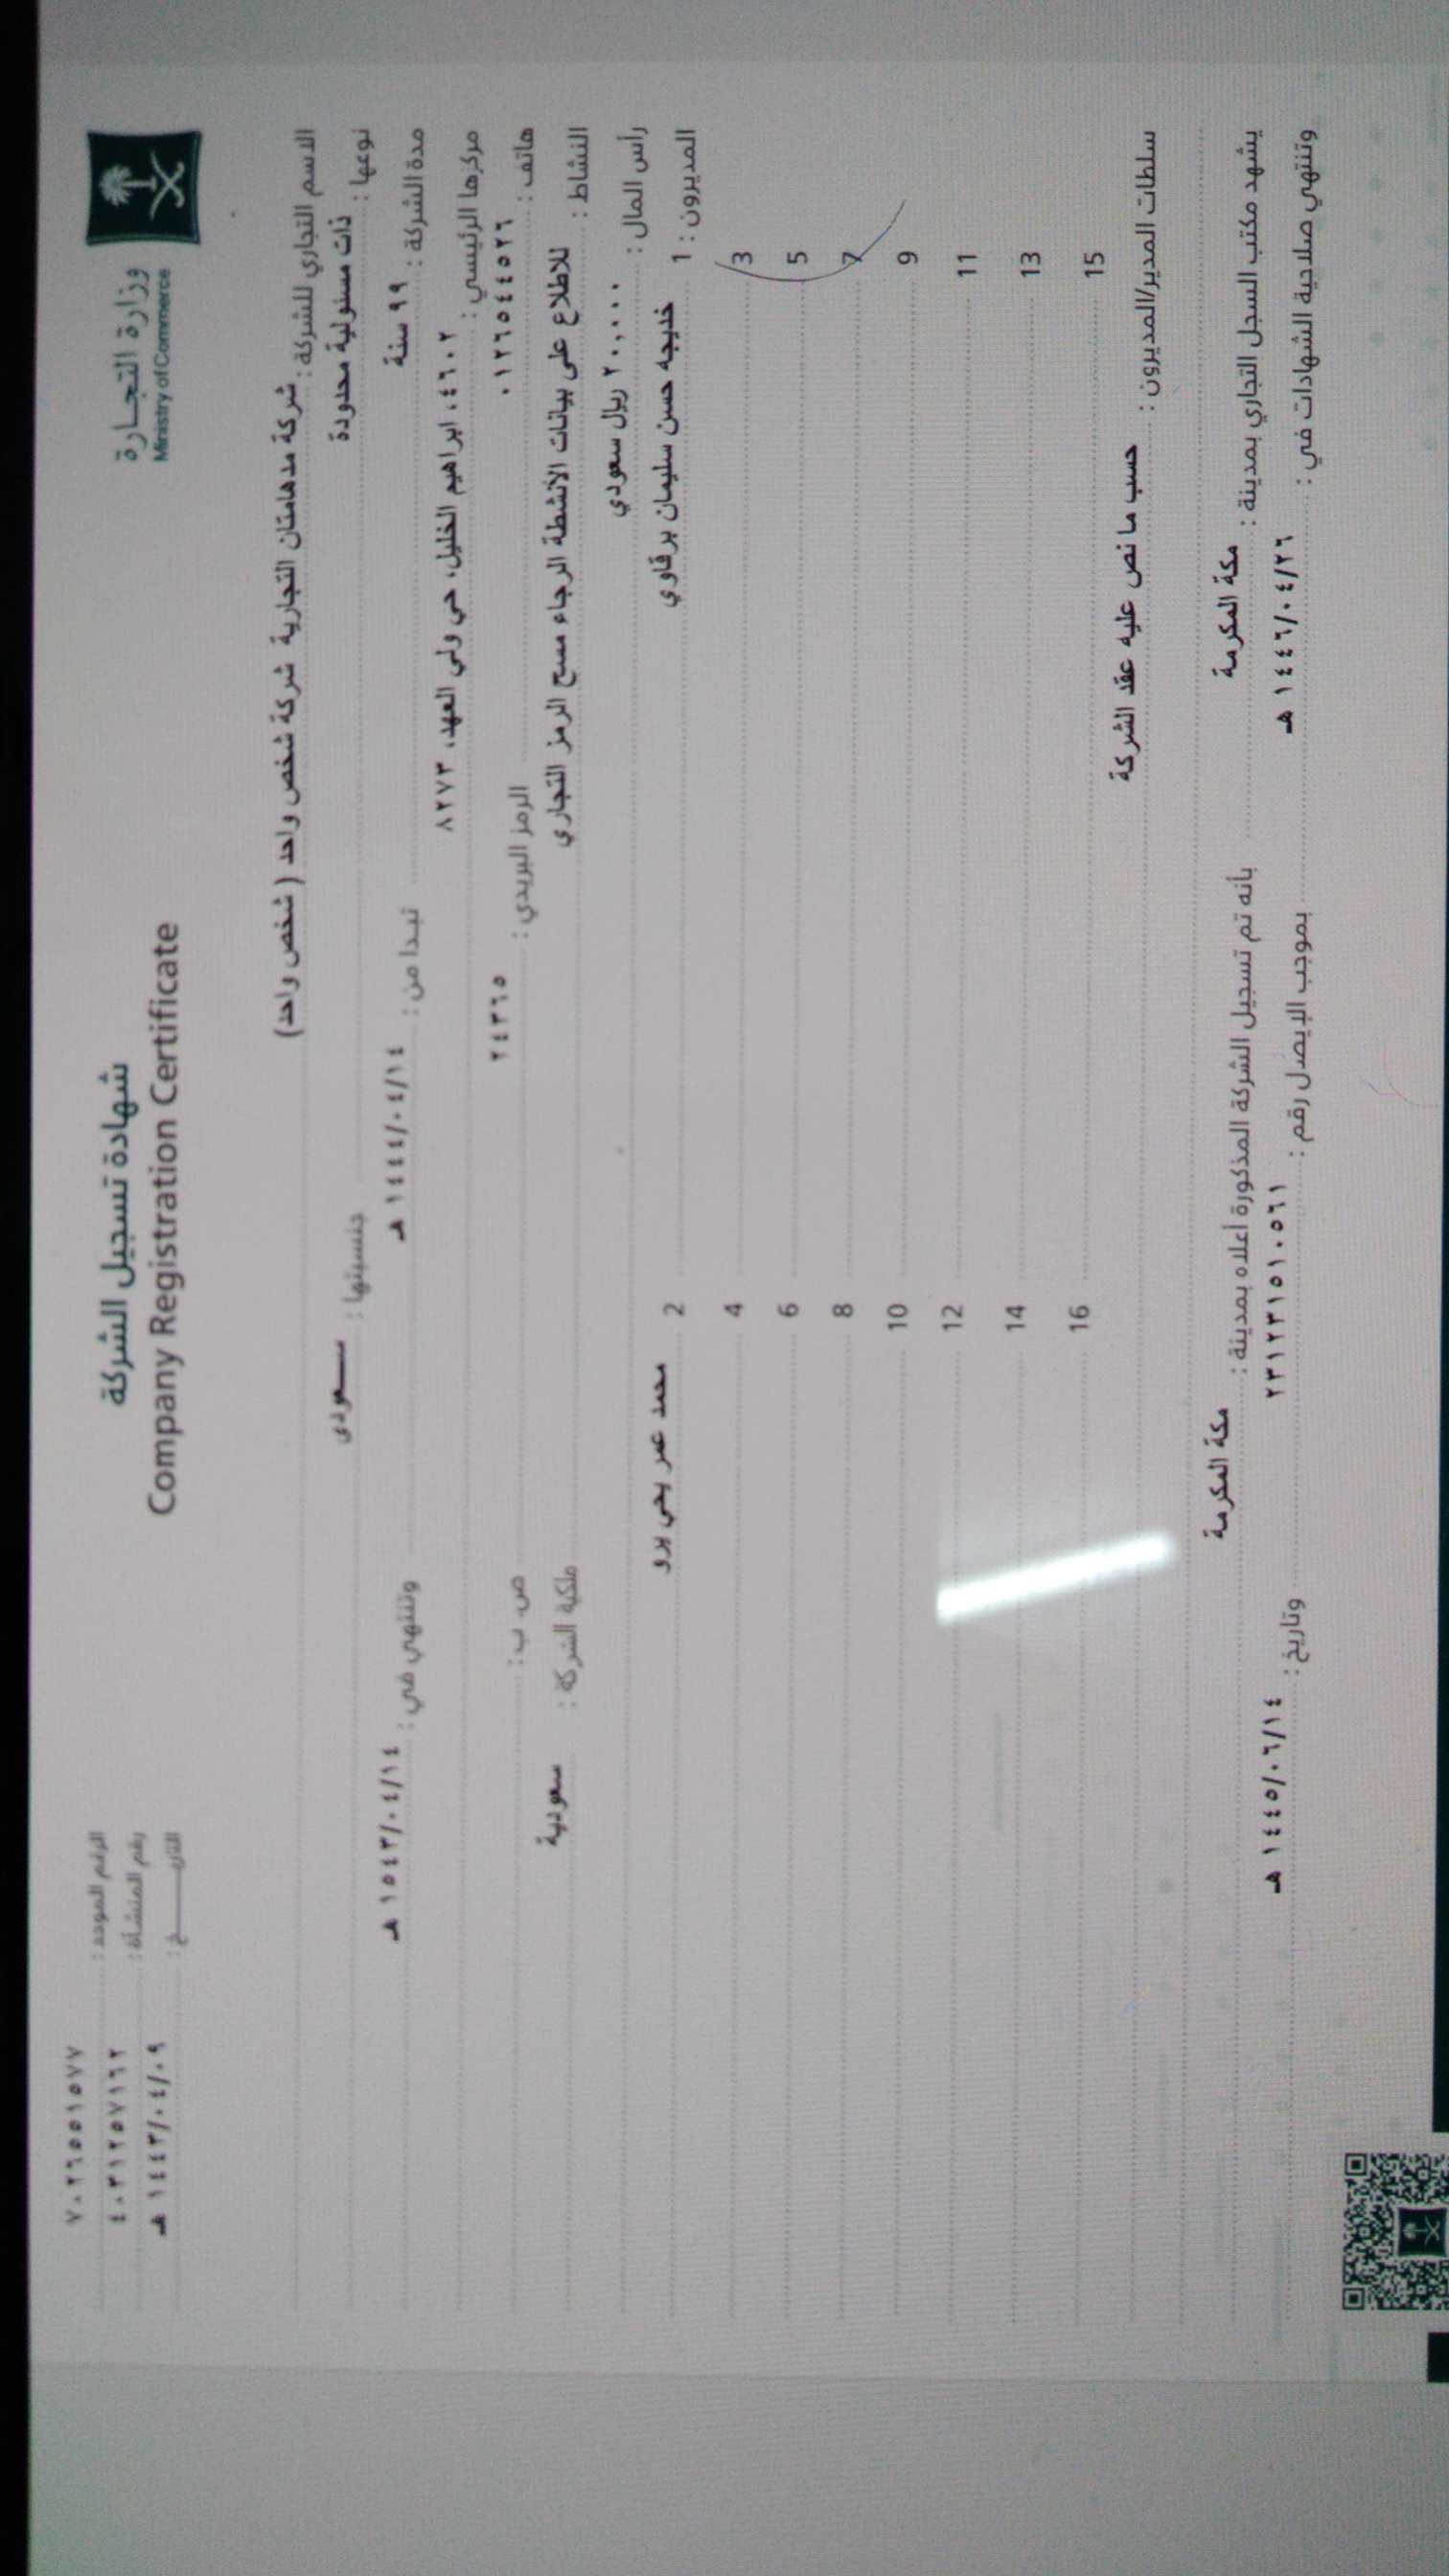 وزارة التجارة
Ministry of Commerce
شهادة تسجيل الشركة
Company Registration Certificate
الرقم الموحد : ٧٠٢٦٥٥١٥٧٧
رقم المنشأة : ٤٠٣١٢٥٧١٦٢
التاريـــــخ : ١٤٤٣/٠٤/٠٩ هـ
الاسم التجاري للشركة : شركة مدهامتان التجارية شركة شخص واحد ( شخص واحد)
نوعها : ذات مسئولية محدودة جنسيتها : سعودى
مدة الشركة : ٩٩ سنة تبدا من : ١٤٤٤/٠٤/١٤ هـ وتنتهي في : ١٥٤٣/٠٤/١٤ هـ
مركزها الرئيسي : ٤٦٠٢، ابراهيم الخليل، حي ولي العهد، ٨٢٧٣
هاتف : ٠١٢٦٥٤٤٥٢٦ الرمز البريدي : ٢٤٣٦٥ ص. ب :
النشاط : للاطلاع على بيانات الأنشطة الرجاء مسح الرمز التجاري ملكية الشركة : سعودية
رأس المال : ٢٠,٠٠٠ ريال سعودي
المديرون : 1 خديجه حسن سليمان برقاوي 2 محمد عمر يحي برو
3 4
5 6
7 8
9 10
11 12
13 14
15 16
سلطات المدير/المديرون : حسب ما نص عليه عقد الشركة
يشهد مكتب السجل التجاري بمدينة : مكة المكرمة بأنه تم تسجيل الشركة المذكورة أعلاه بمدينة : مكة المكرمة
وتنتهي صلاحية الشهادات في : ١٤٤٦/٠٤/٢٦ هـ بموجب الإيصال رقم : ٢٣١٢٣١٥١٠٥٦١ وتاريخ : ١٤٤٥/٠٦/١٤ هـ